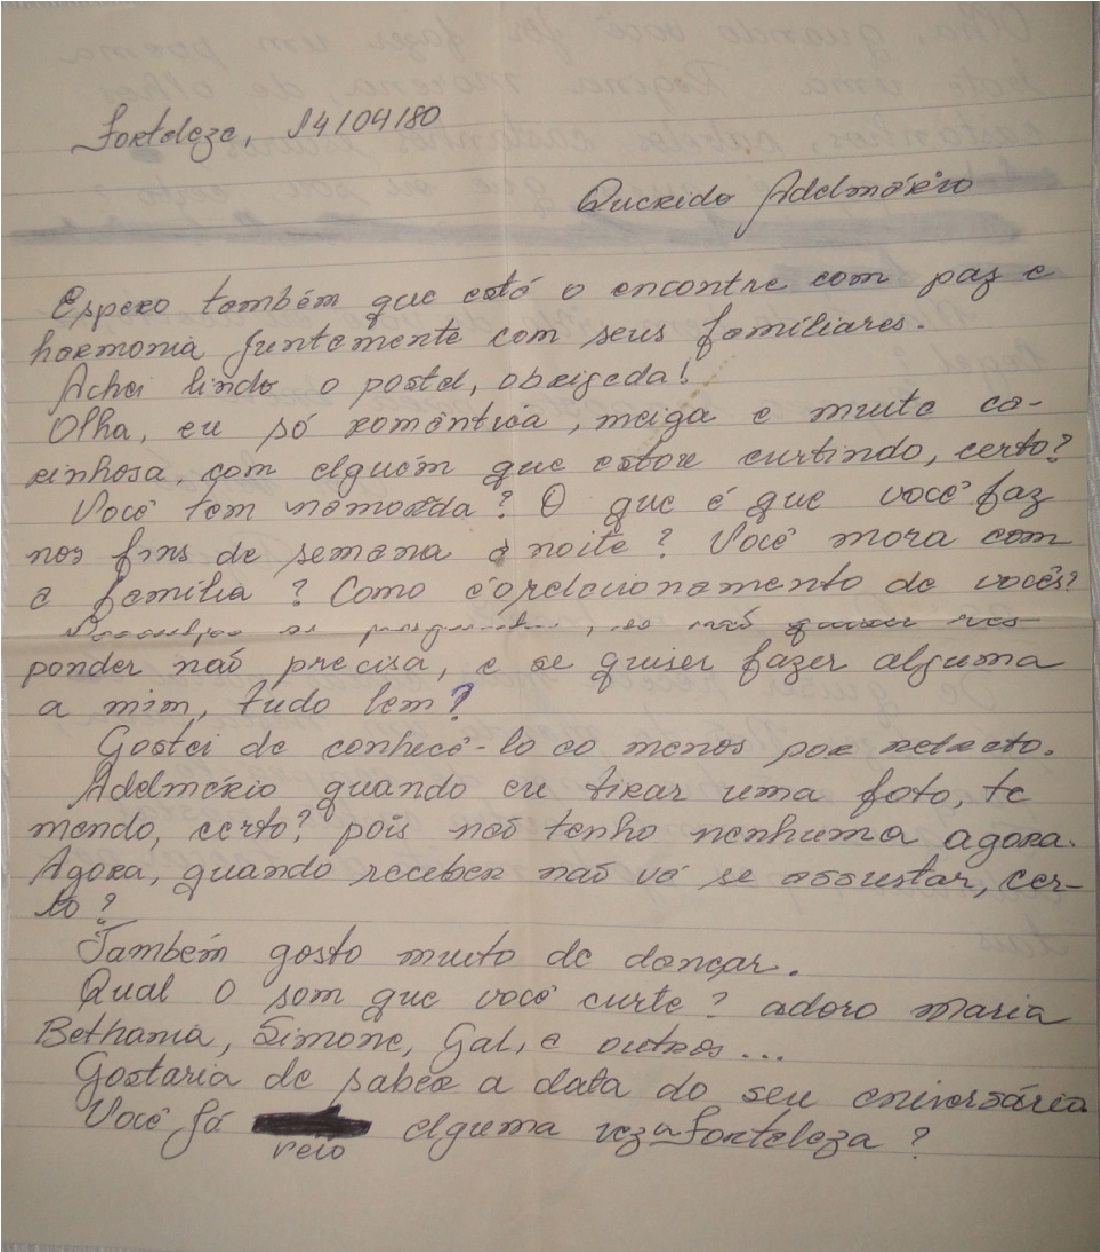 Fortaleza, 14/04/80
Querido Adelmário
Espero também que está o encontre com paz e
harmonia juntamente com seus familiares.
Achei lindo o postal, obrigada!
Olha, eu só romântica, meiga e muito ca-
rinhosa, com alguém que estou curtindo, certo?
Você tem namorada? O que é que você faz
nos fins de semana à noite? Você mora com
a família? Como é o relacionamento de vocês?
Desculpe as perguntas, se não quiser res-
ponder não precisa, e se quiser fazer alguma
a mim, tudo bem?
Gostei de conhecê-lo ao menos por retrato.
Adelmário quando eu tirar uma foto, te
mando, certo? pois não tenho nenhuma agora.
Agora, quando receber não vá se assustar, cer-
to?
Também gosto muito de dançar.
Qual o som que você curte? adoro Maria
Bethania, Simone, Gal, e outros...
Gostaria de saber a data do seu aniversário
Você já alguma vez a Fortaleza?
veio